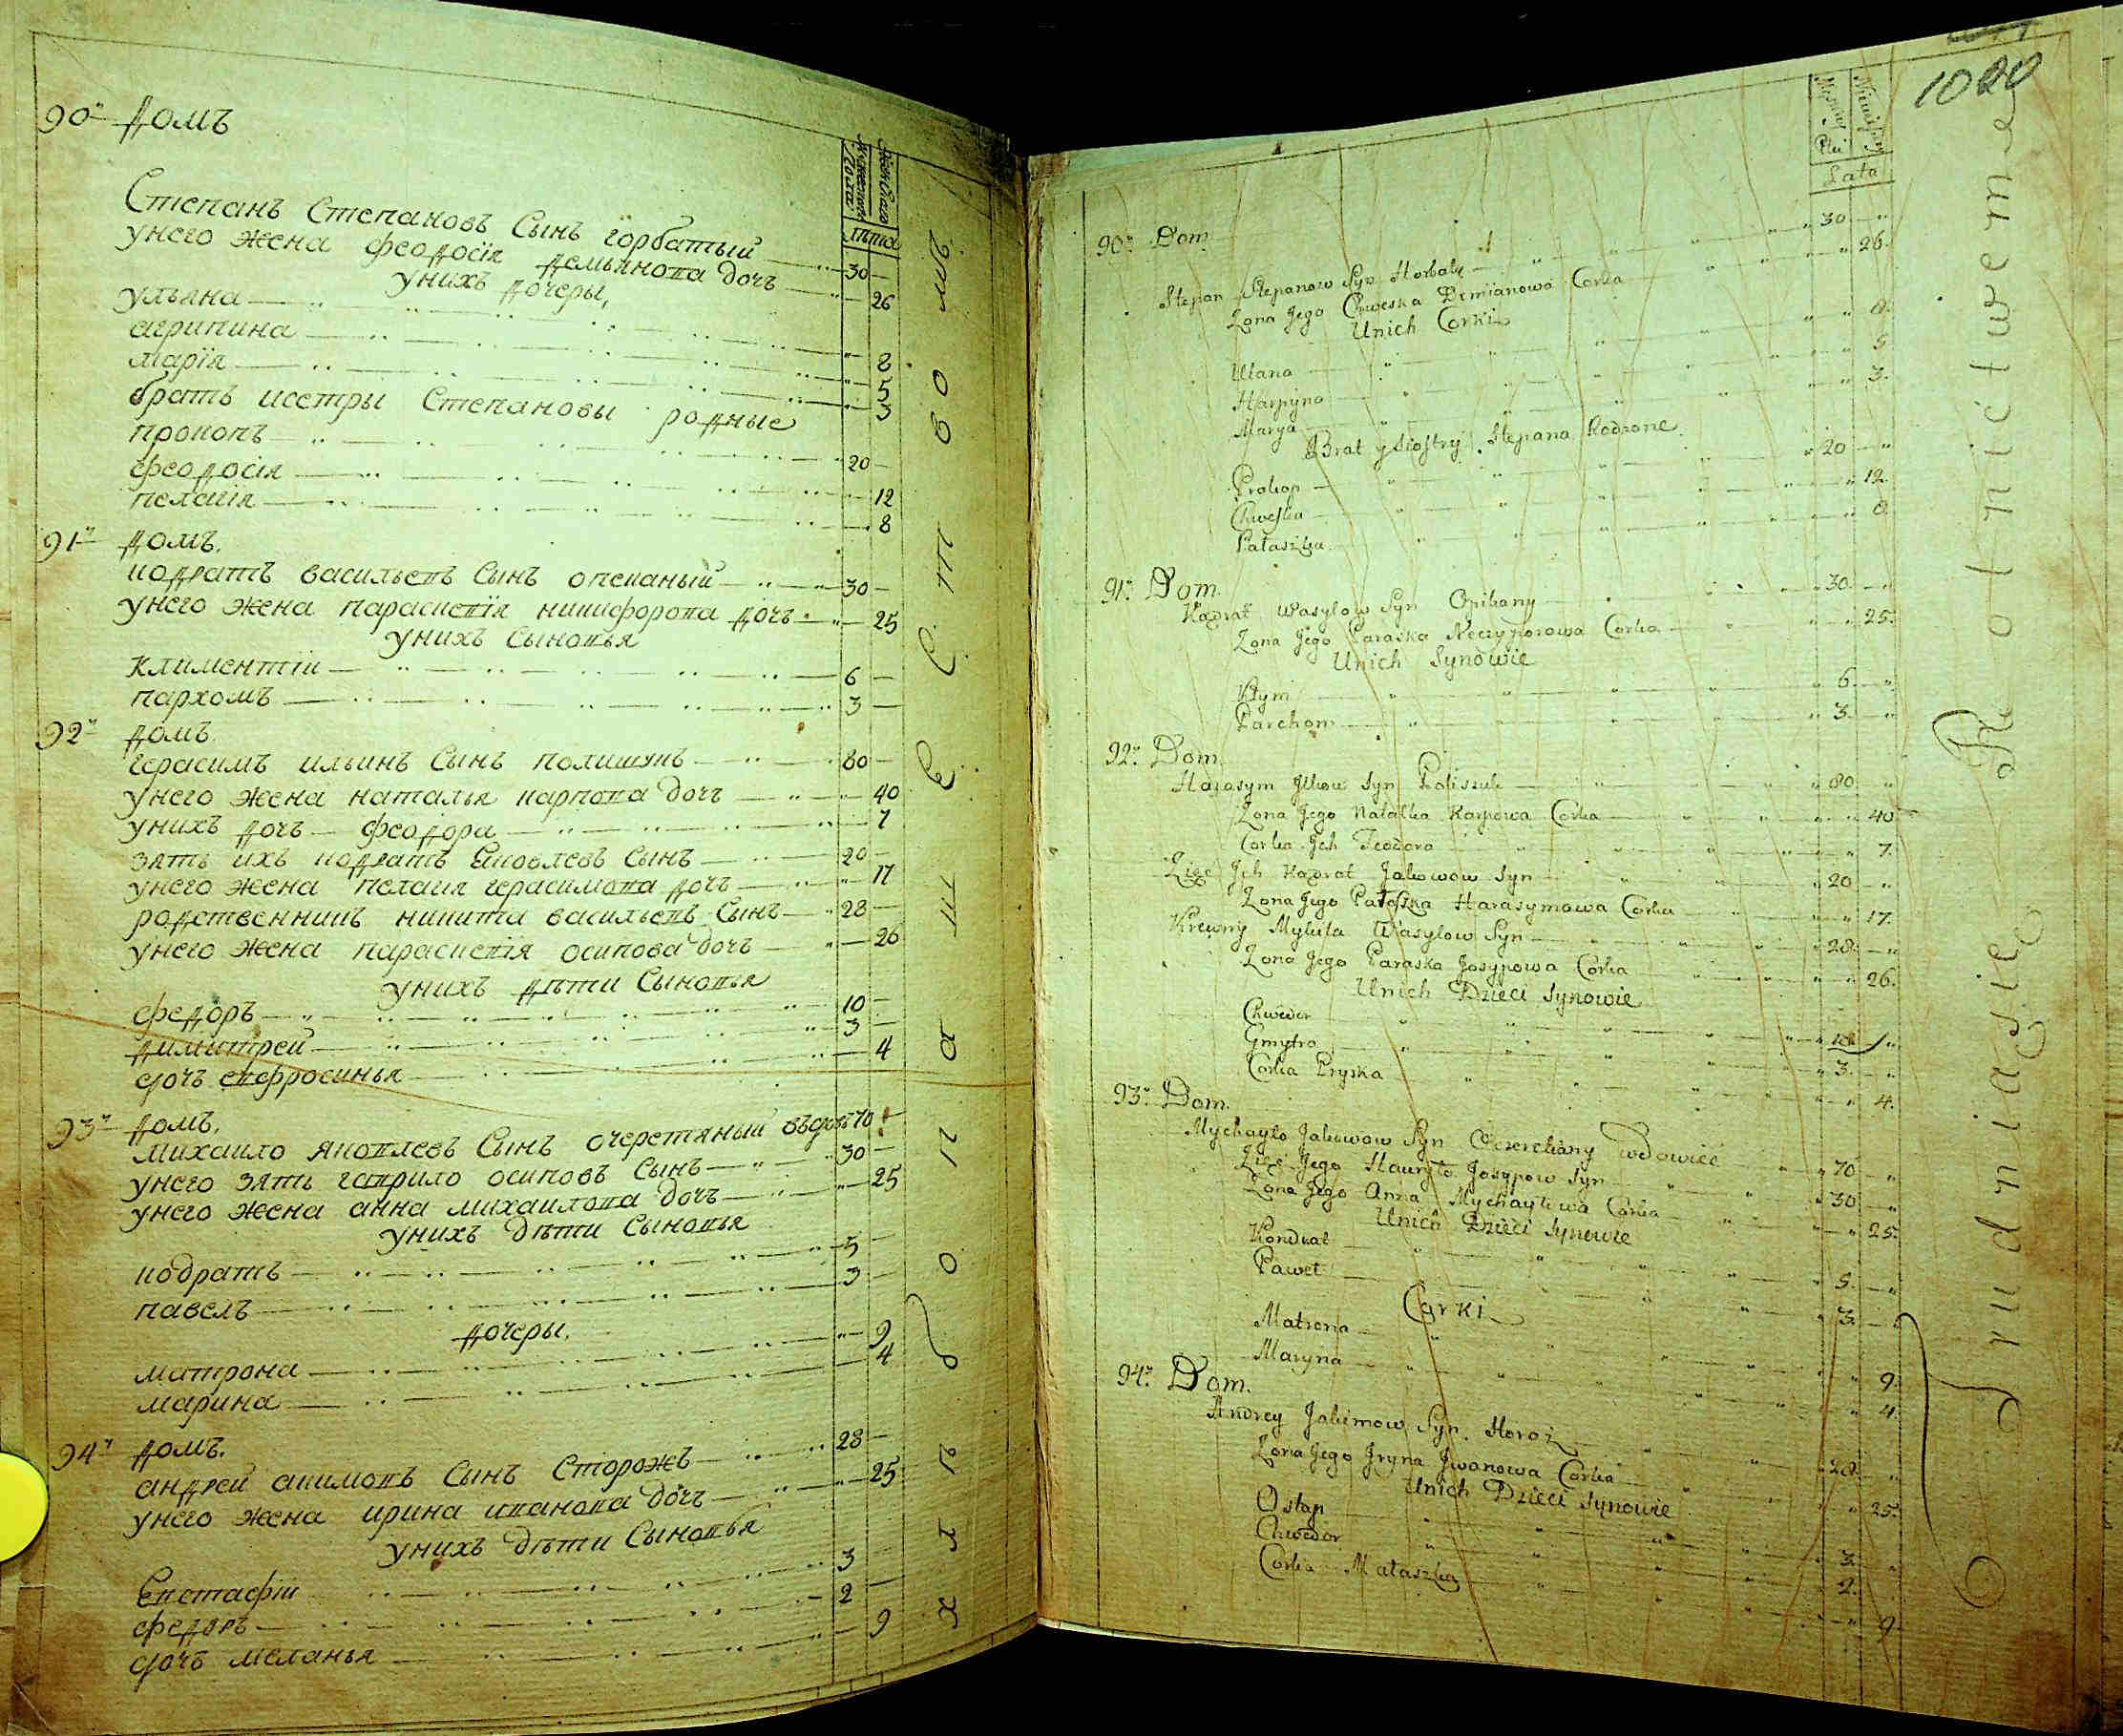 90й домъ
Мужеска Женска
полу
лѣта
Степанъ Степановъ Сынъ горбатый 30
унего жена феодосїя демьянова дочь 26
унихъ дочеры,
ульяна 8
агрипина 5
марїя 3
братъ исстры Степановы родные
прокопъ 20
феодосїя 12
пелагїя 8
91й домъ.
кодратъ васильевъ Сынъ опеканый 30
унего жена параскевїя никифорова дочъ 25
унихъ Сыновья
климентїй 6
пархомъ 3
92й домъ.
герасимъ ильинъ Сынъ полишукъ 80
унего жена наталья карпова дочъ 40
унихъ дочъ феодора 7
зять ихъ кодратъ Яковлевъ Сынъ 20
унего жена пелагия герасимова дочъ 17
родственникъ никита васильевъ Сынъ 28
унего жена параскевїя осипова дочъ 26
унихъ дѣти Сыновья
федоръ 10
димитрей 3
дочъ евфросинья 4
93й домъ.
михайло яковлевъ Сынъ очеретяный 70
унего зять гаврило осиповъ Сынъ 30
унего жена анна михаилова дочъ 25
унихъ дѣти Сыновья
кодратъ 5
павелъ 3
дочеры.
матрона 9
марина 4
94й домъ.
андрей акимовъ Сынъ Сторожъ 28
унего жена ирина иванова дочъ 25
унихъ дѣти Сыновья
Евстафїй 3
федоръ 2
дочъ меланья 9
1020
Męskiey Niewieściey
Płci
Lata
90° Dom
Stepan Stepanow Syn Horbaty 30
Zona Jego Chweska Demianowa Corka 26
Unich Corki
Ulana 8
Harpyna 5
Marya 3
Brat y Siostry Stepana Rodzone
Prokop 20
Chweska 12
Pałaszka 8
91° Dom.
Kadrat Wasylow Syn Opikany 30
Zona Jego Paraska Neczyporowa Corka 25
Unich Synowie
Kłym 6
Parchom 3
92° Dom
Harasym Jlkow Syn Poliszuk 80
Zona Jego Natalka Karpowa Corka 40
Corka Jch Teodora 7
Zięc Jch Kadrat Jakowow Syn 20
Zona Jego Pałaszka Harasymowa Corka 17
Krewny Mykita Wasylow Syn 28
Zona Jego Paraska Josypowa Corka 26
Unich Dzieci Synowie
Chwedor 10
Gmytro 3
Corka Pryska 4
93° Dom.
Mychayło Jakowow Syn Oczeretiany wdowiec 70
Zięc Jego Hawryło Josypow Syn 30
Zona Jego Anna Mychayłowa Corka 25
Unich Dzieci Synowie
Kondrat 5
Paweł 3
Corki
Matrona 9
Maryna 4
94° Dom.
Andrey Jakimow Syn Storoż 28
Zona Jego Jryna Jwanowa Corka 25
Unich Dzieci Synowie
Ostap 3
Chwedor 2
Corka Małaszka 9